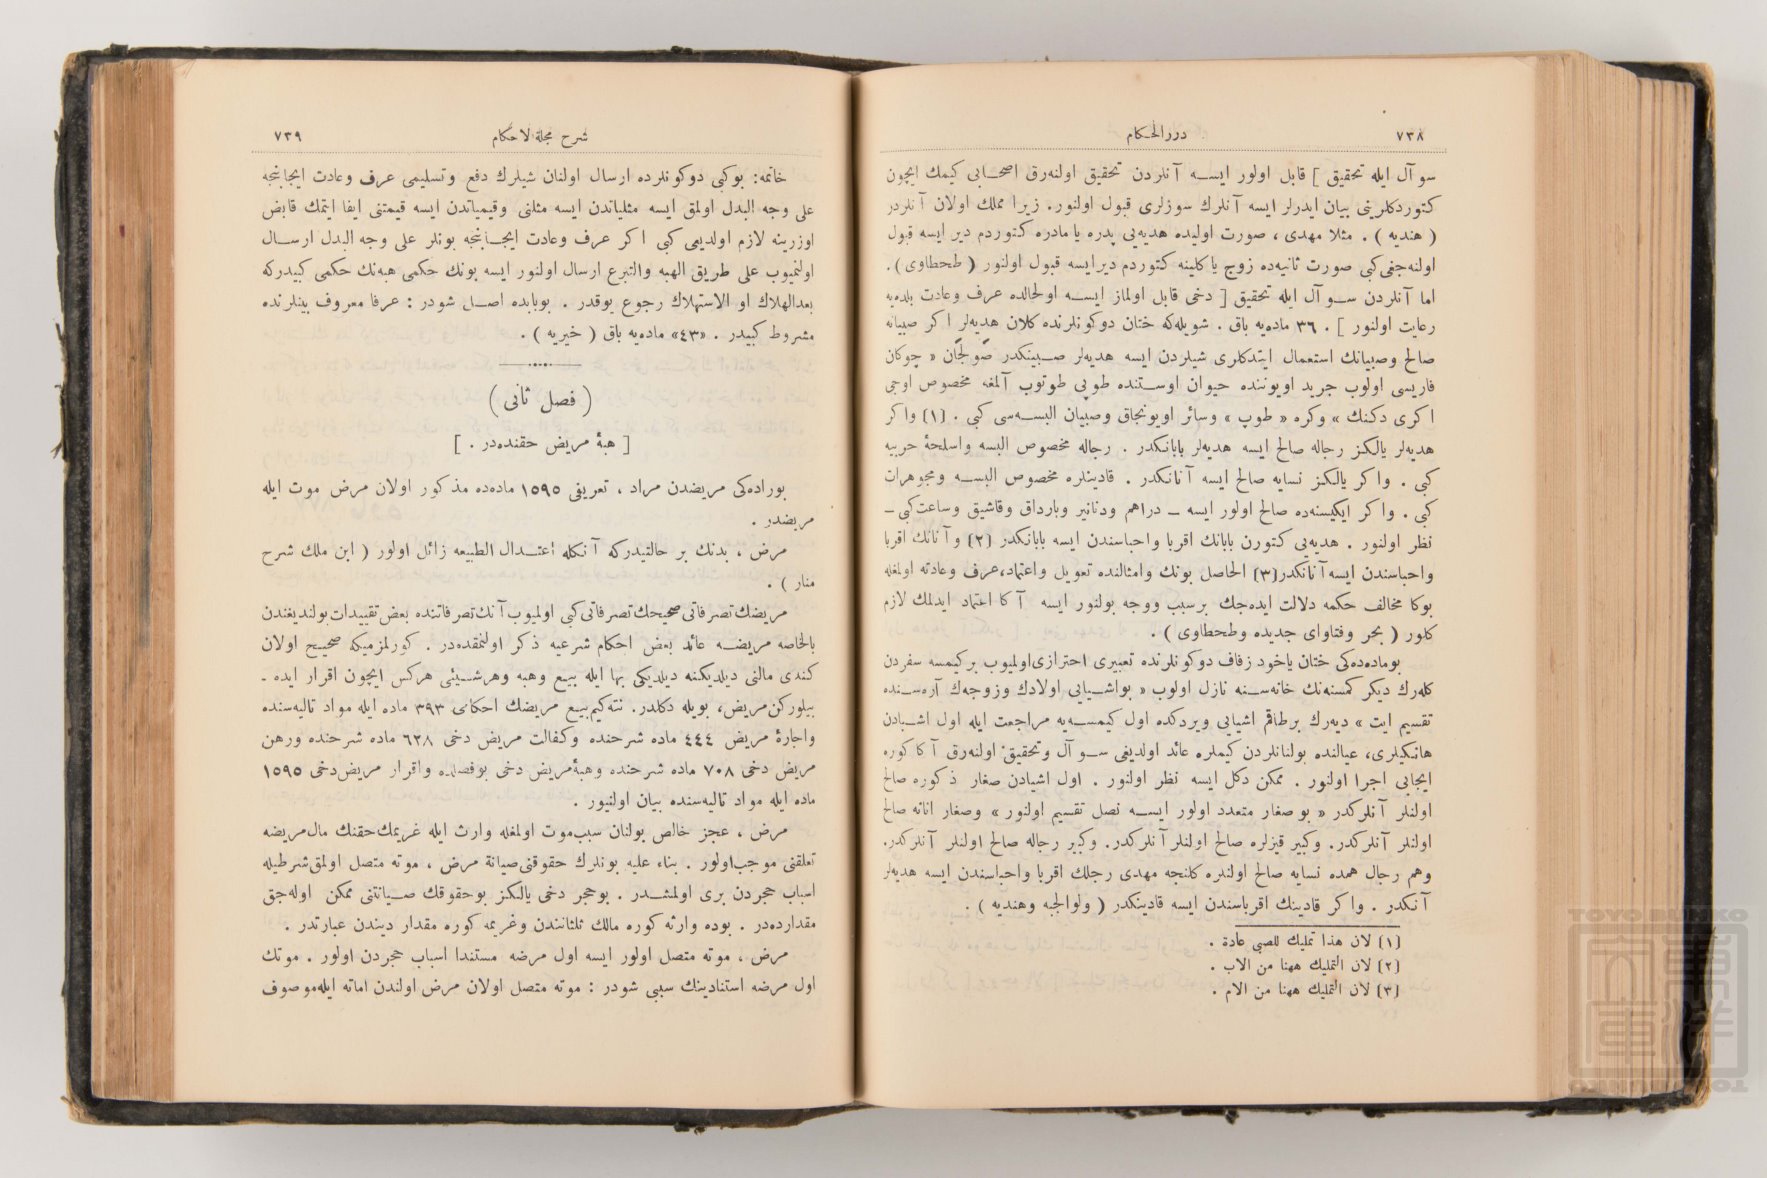 ٧٣٨
دررالحكام
سو آل ايله تحقيق ] قابل اولور ايسه آنلردن تحقيق اولنه‌رق اصحابى كيمك ايچون
كتوردكلرينى بيان ايدرلر ايسه آنلرك سوزلرى قبول اولنور. زيرا مملك اولان آنلردر
( هنديه ) . مثلا مهدى ، صورت اوليده هديه‌يى پدره يا مادره كتوردم دير ايسه قبول
اولنه‌جغى كبى صورت ثانيه‌ده زوج يا كلينه كتوردم ديرايسه قبول اولنور ( طحطاوى ).
اما آنلردن سو آل ايله تحقيق [ دخى قابل اولماز ايسه اولحالده عرف وعادت بلده‌يه
رعايت اولنور ] . ٣٦ ماده‌يه باق . شويله‌كه ختان دوكونلرنده كلان هديه‌لر اكر صبيانه
صالح وصبيانك استعمال ايتدكلرى شيلردن ايسه هديه‌لر صبينكدر صولجان « چوكان
فاريسى اولوب جريد اويوننده حيوان اوستنده طوپى طوتوب آلمغه مخصوص اوجى
اكرى دكنك » وكره « طوپ » وسائر اويونجاق وصبيان البسه‌سى كبى . (١) واكر
هديه‌لر يالكز رجاله صالح ايسه هديه‌لر بابانكدر . رجاله مخصوص البسه واسلحۀ حربيه
كبى . واكر يالكز نسايه صالح ايسه آنانكدر . قادينلره مخصوص البسه ومجوهرات
كبى . واكر ايكيسنه‌ده صالح اولور ايسه ــ دراهم ودنانير وبارداق وقاشيق وساعت كبى ــ
نظر اولنور . هديه‌يى كتورن بابانك اقربا واحباسندن ايسه بابانكدر (٢) وآنانك اقربا
واحباسندن ايسه آنانكدر(٣) الحاصل بونك وامثالنده تعويل واعتماد، عرف وعادته اولمغله
بوكا مخالف حكمه دلالت ايده‌جك برسبب ووجه بولنور ايسه آكا اعتماد ايدلمك لازم
كلور ( بحر وفتاواى جديده وطحطاوى ) .
بوماده‌ده‌كى ختان ياخود زفاف دوكونلرنده تعبيرى احترازى اولميوب بركيمسه سفردن
كله‌رك ديكر كمسنه‌نك خانه‌سنه نازل اولوب « بواشيايى اولادك وزوجه‌ك آره‌سنده
تقسيم ايت » ديه‌رك برطاقم اشيايى ويردكده اول كيمسه‌يه مراجعت ايله اول اشيادن
هانكيلرى، عيالنده بولنانلردن كيملره عائد اولديغى سو آل وتحقيق اولنه‌رق آكا كوره
ايجابى اجرا اولنور . ممكن دكل ايسه نظر اولنور . اول اشيادن صغار ذكوره صالح
اولنلر آنلركدر « بو صغار متعدد اولور ايسه نصل تقسيم اولنور » وصغار اناثه صالح
اولنلر آنلركدر. وكبير قيزلره صالح اولنلر آنلركدر. وكبير رجاله صالح اولنلر آنلركدر.
وهم رجال همده نسايه صالح اولنلره كلنجه مهدى رجلك اقربا واحباسندن ايسه هديه‌لر
آنكدر . واكر قادينك اقرباسندن ايسه قادينكدر ( ولوالجيه وهنديه ) .
(١) لان هذا تمليك للصبى عادة .
(٢) لان التمليك ههنا من الاب .
(٣) لان التمليك ههنا من الام .
شرح مجلة الاحكام
٧٣٩
خاتمه: بوكبى دوكونلرده ارسال اولنان شيلرك دفع وتسليمى عرف وعادت ايجابنجه
على وجه البدل اولمق ايسه مثلياتدن ايسه مثلنى وقيمياتدن ايسه قيمتنى ايفا ايتمك قابض
اوزرينه لازم اولديغى كبى اكر عرف وعادت ايجابنجه بونلر على وجه البدل ارسال
اولنميوب على طريق الهبه والتبرع ارسال اولنور ايسه بونك حكمى هبه‌نك حكمى كبيدركه
بعدالهلاك او الاستهلاك رجوع يوقدر . بوبابده اصل شودر : عرفا معروف بينلرنده
مشروط كبيدر . «٤٣» ماده‌يه باق ( خيريه ) .
( فصل ثانى )
[ هبۀ مريض حقنده‌در . ]
بوراده‌كى مريضدن مراد ، تعريفى ١٥٩٥ ماده‌ده مذكور اولان مرض موت ايله
مريضدر .
مرض ، بدنك بر حالتيدركه آنكله اعتدال الطبيعه زائل اولور ( ابن ملك شرح
منار ) .
مريضك تصرفاتى صحيحك تصرفاتى كبى اولميوب آنك تصرفاتنده بعض تقييدات بولنديغندن
بالخاصه مريضه عائد بعض احكام شرعيه ذكر اولنمقده‌در . كورلمزميكه صحيح اولان
كندى مالنى ديلديكنه ديلديكى بها ايله بيع وهبه وهرشيئى هركس ايچون اقرار ايده ـ
بيلوركن مريض، بويله دكلدر. نته‌كيم بيع مريضك احكامى ٣٩٣ ماده ايله مواد تاليه‌سنده
واجارۀ مريض ٤٤٤ ماده شرحنده وكفالت مريض دخى ٦٢٨ ماده شرحنده ورهن
مريض دخى ٧٠٨ ماده شرحنده وهبۀ مريض دخى بوفصلده واقرار مريض دخى ١٥٩٥
ماده ايله مواد تاليه‌سنده بيان اولنيور .
مرض ، عجز خالص بولنان سبب‌موت اولمغله وارث ايله غريمك‌حقنك مال‌مريضه
تعلقنى موجب اولور . بناء عليه بونلرك حقوقنى صيانة مرض ، موته متصل اولمق شرطيله
اسباب حجردن برى اولمشدر . بوحجر دخى يالكز بوحقوقك صيانتى ممكن اوله‌جق
مقدارده‌در . بوده وارثه كوره مالك ثلثانندن وغريمه كوره مقدار ديندن عبارتدر .
مرض ، موته متصل اولور ايسه اول مرضه مستندا اسباب حجردن اولور . موتك
اول مرضه استنادينك سببى شودر : موته متصل اولان مرض اولندن اماته ايله موصوف
TOYO BUNKO